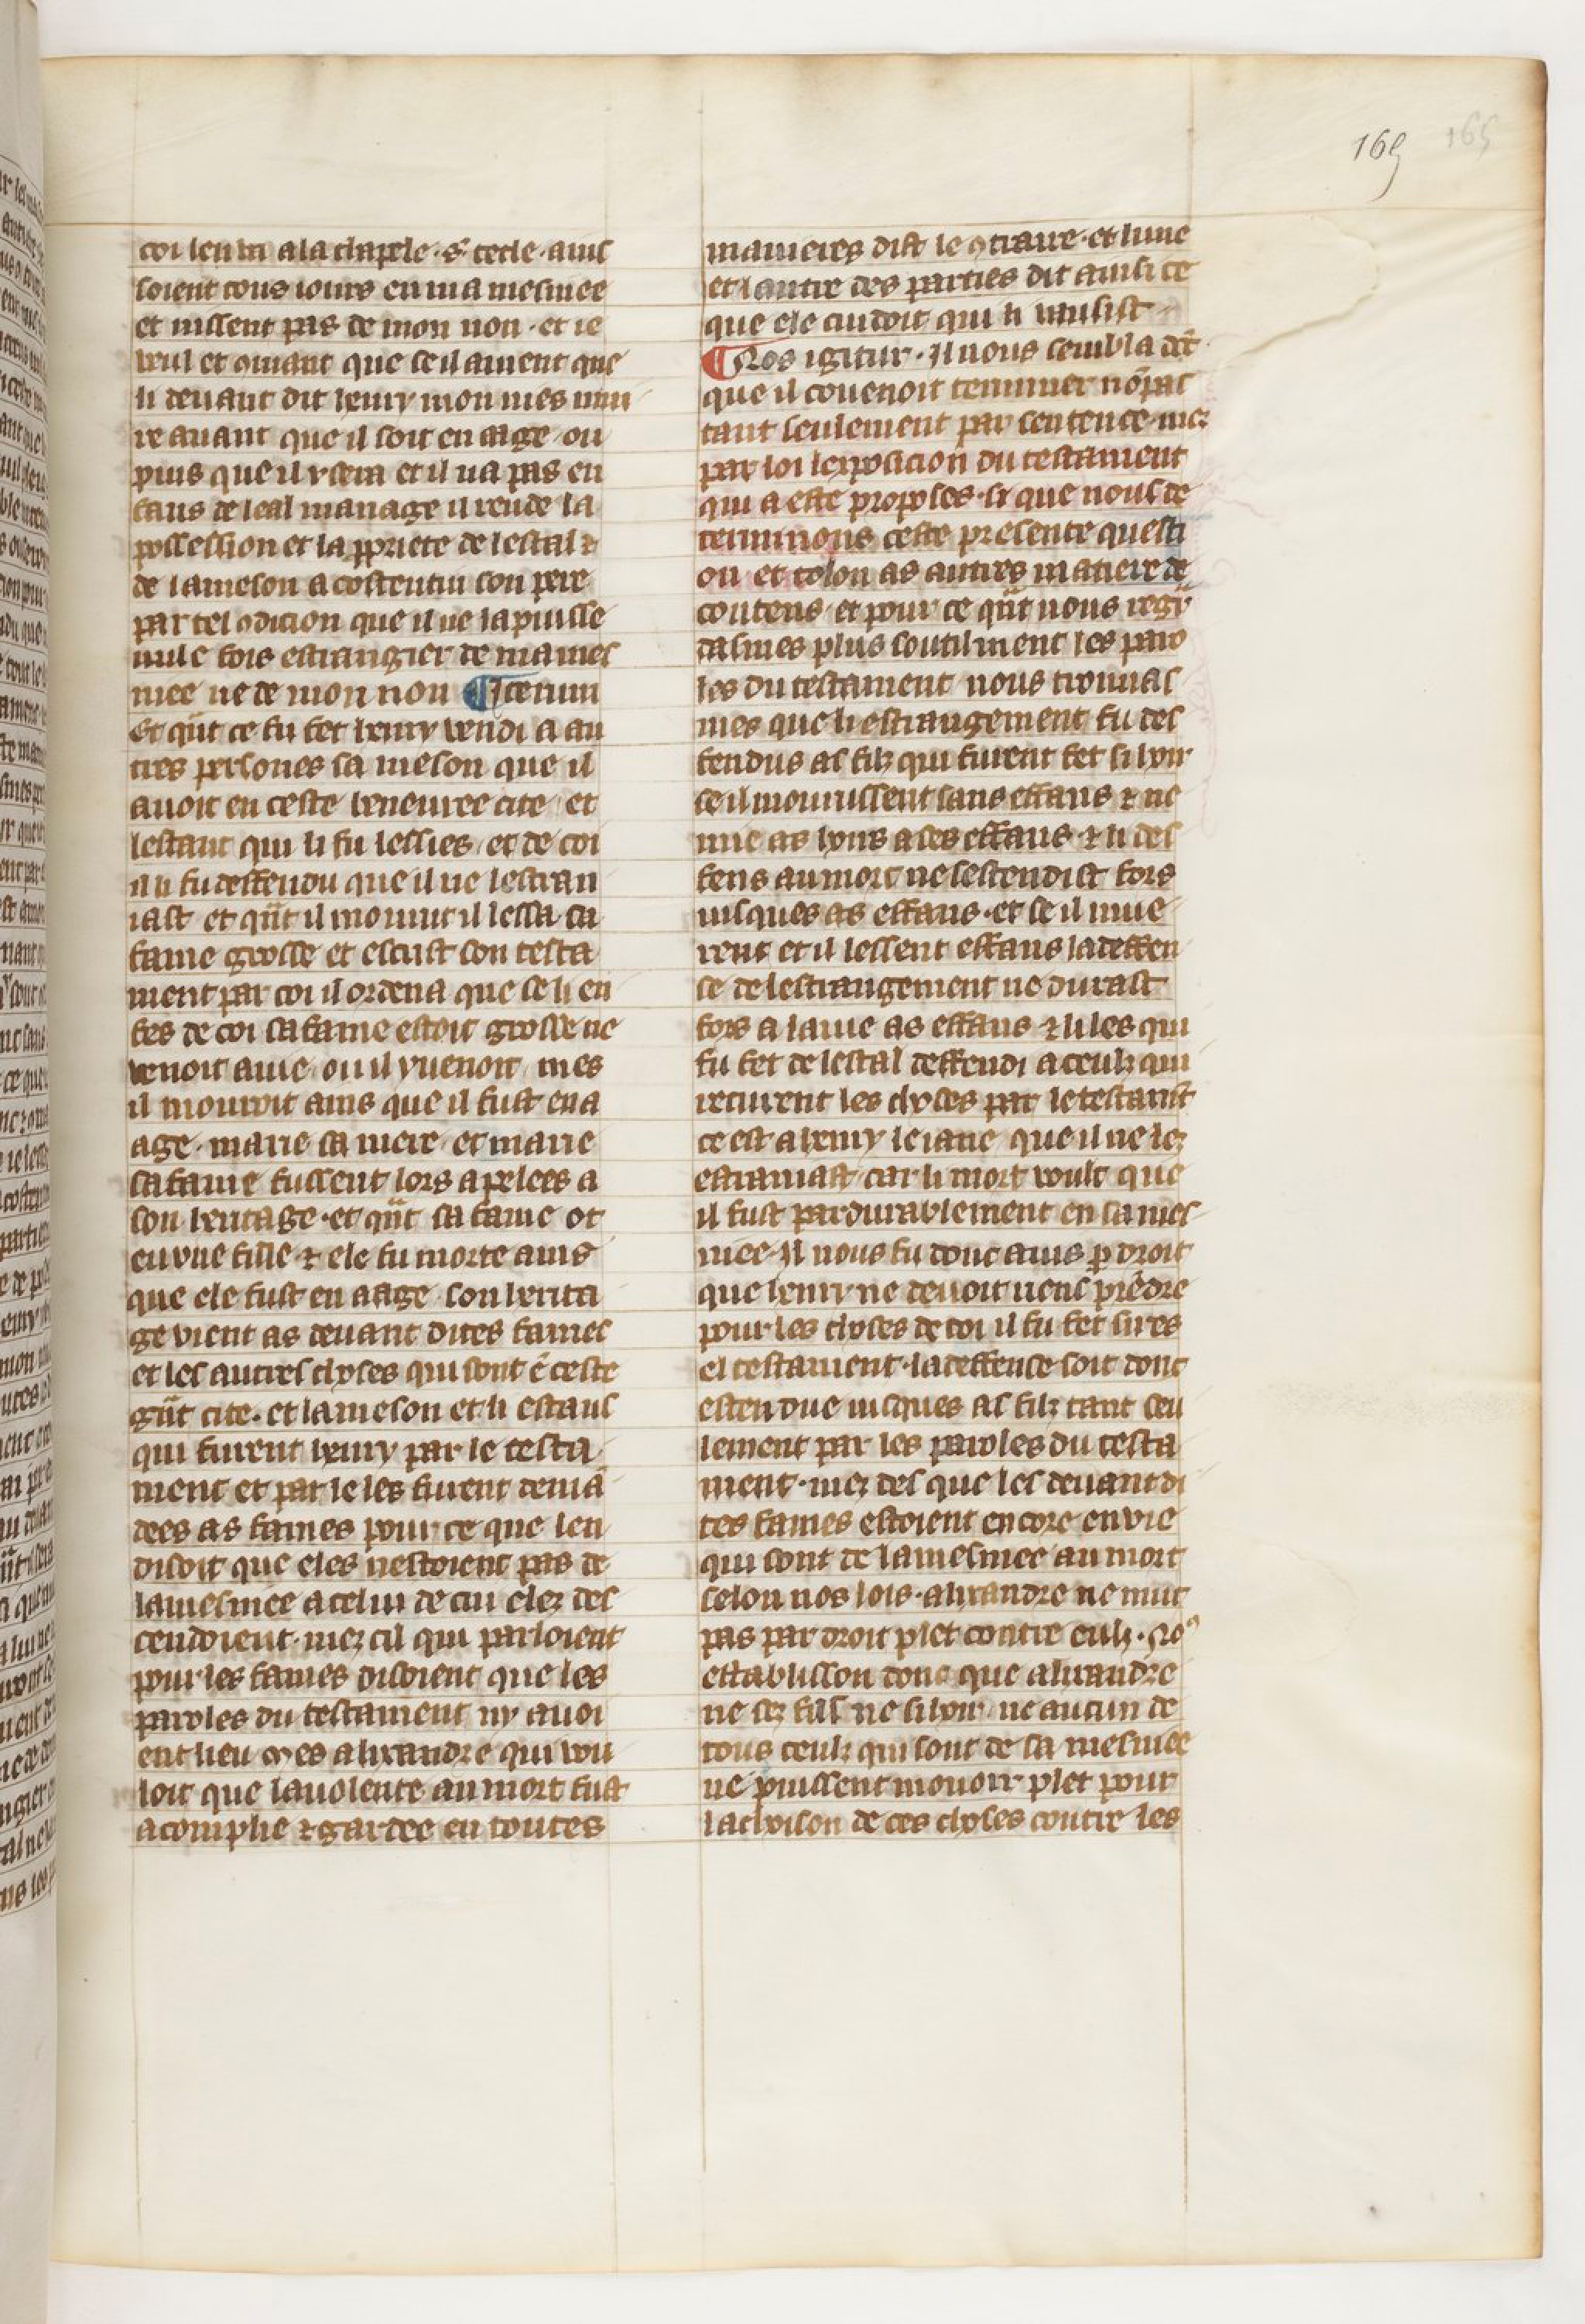 169 165
coi len va a la chapele · s̃ tecle · ains
soient tous iours en ma mesniee
et nissent pas de mon non · et ie
vvil et omant que se il auient que
li deuant dit henry mon nies mui
re auant que il soit en aage ou
puis que il y sera et il na pas en
fans de leal mariage il rende la
possession et la ppriete de lestal ⁊
de la meson a costentin son pere
par tel ꝯdicion que il ne la puisse
nule fois estrangier de ma mes
niee ne de mon non ¶ Iterum
Et qn̄t ce fu fet henry vendi a au
tres persones sa meson que il
auoit en ceste beneuree cite et
lestaut qui li fu lessies et de coi
il li fu deffendu que il ne lestran
iast et qn̄t il mourut il lessa sa
fame grosse et escrist son testa
ment par coi il ordena que se li en
fes de coi sa fame estoit grosse ne
venoit a uie ou il y uenoit mes
il mouroit ains que il fust en a
age · marie sa mere · et marie
sa fame fussent lors apelees a
son heritage · et qn̄t sa fame ot
eu vne fille ⁊ ele fu morte ains
que ele fust en aage son herita
ge vient as deuant dites fames
et les autres choses qui sont ē ceste
gn̄t cite · et la meson et li estaus
qui furent henry par le testa
ment et par le les furent demā
dees as fames pour ce que len
disoit que eles nestoient pas de
la mesniee a celui de cui elez des
cendoient · mez cil qui parloient
pour les fames disoient que les
paroles du testament ny auoi
ent lieu mes alixandre qui vou
loit que la uolente au mort fust
acomplie ⁊ gardee en toutes
manieres dist le ꝯtraire · et lune
et lautre des parties dit ainsi ce
que ele cuidoit qui li vausist
¶ Nos igitur · Il nous sembla dōt
que il couenoit terminer nō pas
tant seulement par sentence · mez
par loi lexposicion du testament
qui a este proposes · si que nous de
terminons ceste presente questi
on et tolon as autres matiere de
contens · et pour ce qn̄t nous regar
dasmes plus soutilment les paro
les du testament nous trouuas
mes que li estrangement fu des
fendus as filz qui furent fet si hoir
se il mourussent sans effans ⁊ ne
mie as hoirs a ces effans ⁊ li des
fens au mort ne sestendist fors
iusques as effans · et se il mue
rent et il lessent effans la deffen
se de lestrangement ne durast
fors a la uie as effans ⁊ li les qui
fu fet de lestal deffendi a ceulz qui
recurent les choses par le testamēt
ce est a henry le iane que il ne lez
estraniast car li mort voult que
il fust pardurablement en sa mes
niee · Il nous fu donc auis p droit
que henry ne deuoit riens prēdre
pour les choses de coi il fu fet sires
el testament · la deffense soit donc
estendue iusques as filz tant seu
lement par les paroles du testa
ment · mez des que les deuant di
tes fames estoient encore en vie
qui sont de la mesniee au mort
selon nos lois · alixandre ne muet
pas par droit plet contre eulz · No⁹
establisson donc que alixandre
ne sez filz ne si hoir ne aucun de
tous ceulz qui sont de sa mesniee
ne puissent mouoir plet pour
lachoison de ces choses contre les